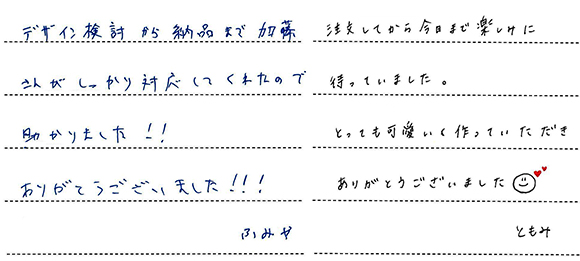 デザイン検討から納品まで加藤
さんがしっかり対応してくれたので
助かりました!!
ありがとうございました!!!
ふみや
注文してから今日まで楽しみに
待っていました。
とっても可愛いく作っていただき
ありがとうございました
ともみ